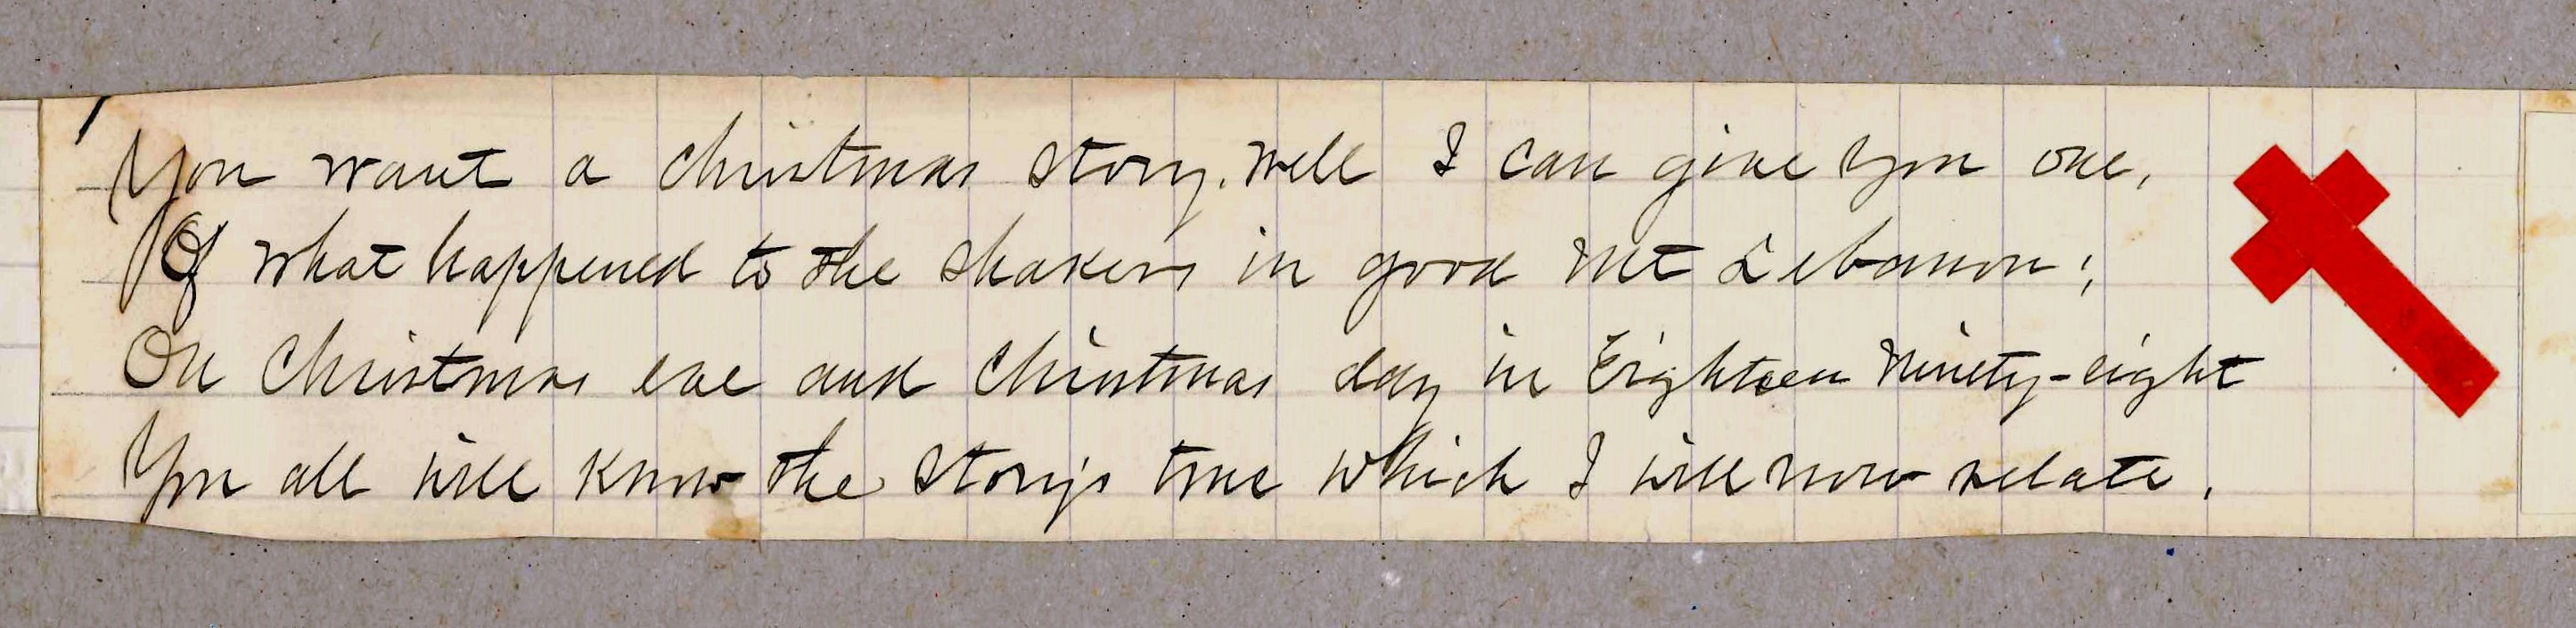 You want a Christmas story. Well I can give you one,
Of what happened to the Shakers in good Mt Lebanon;
On Christmas eve and Christmas day in Eighteen Ninety-eight
You all will know the story's true which I will now relate.